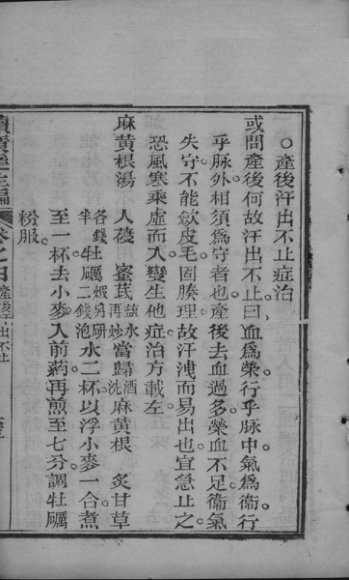 ○產後汗出不止症治
或問產後何故汗出不止曰血爲榮行乎脉中氣爲衞行
乎脉外相須爲守者也產後去血過多榮血不足衞氣
失守不能歛皮毛固腠理故汗洩而易出也宜急止之
恐風寒乘虛而入變生他症治方載左
麻黃根湯　人葠　蜜芪鹽水再炒　當歸酒洗　麻黃根　炙甘草
各錢半　牡礪二錢煅另研　池水二杯以浮小麥一合煮
至一杯去小麥入前葯再煎至七分調牡礪
粉服
卷之四　產後汗出不止